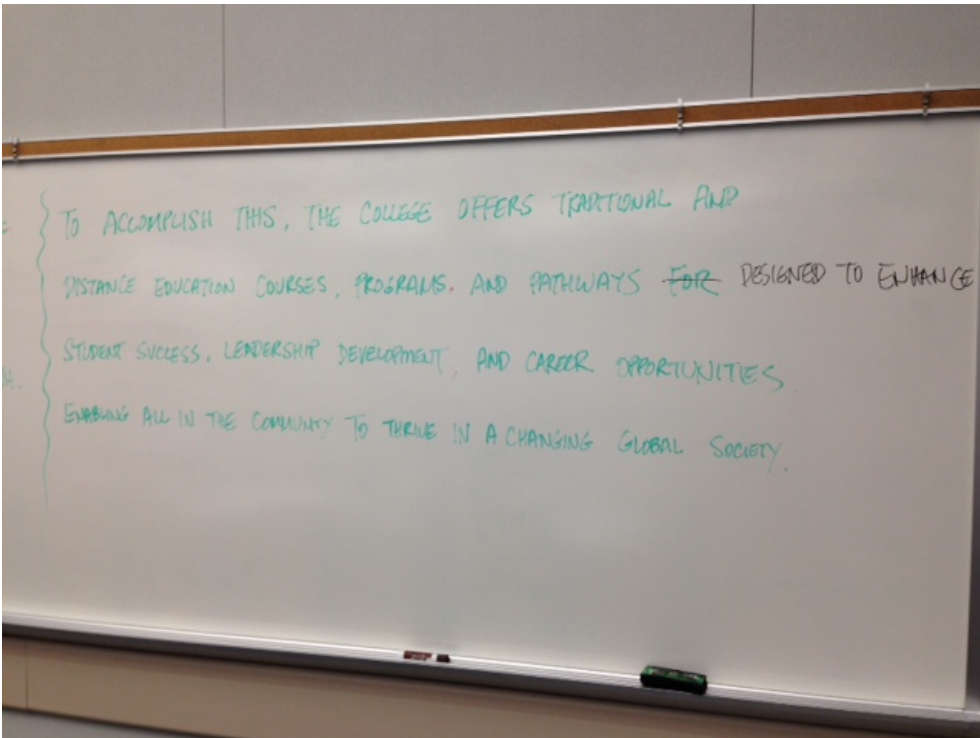 TO ACCOMPLISH THIS, THE COLLEGE OFFERS TRADITIONAL AND
DISTANCE EDUCATION COURSES, PROGRAMS, AND PATHWAYS FOR DESIGNED TO ENHANCE
STUDENT SUCCESS, LEADERSHIP DEVELOPMENT, AND CAREER OPPORTUNITIES.
ENABLING ALL IN THE COMMUNITY TO THRIVE IN A CHANGING GLOBAL SOCIETY.